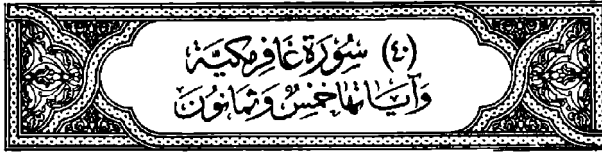 (٤٠) سُورَة غَافِر مَكِيَّة
وَآيَاتُهَا خَمْسٌ وَثَمَانُونَ